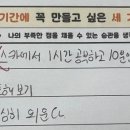 기간에 꼭 만들고 싶은 세
나의 부족한 점을 채울 수 있는 습관을 생각
카에서 1시간 공부하고 10분
해 보기
심히 외운다